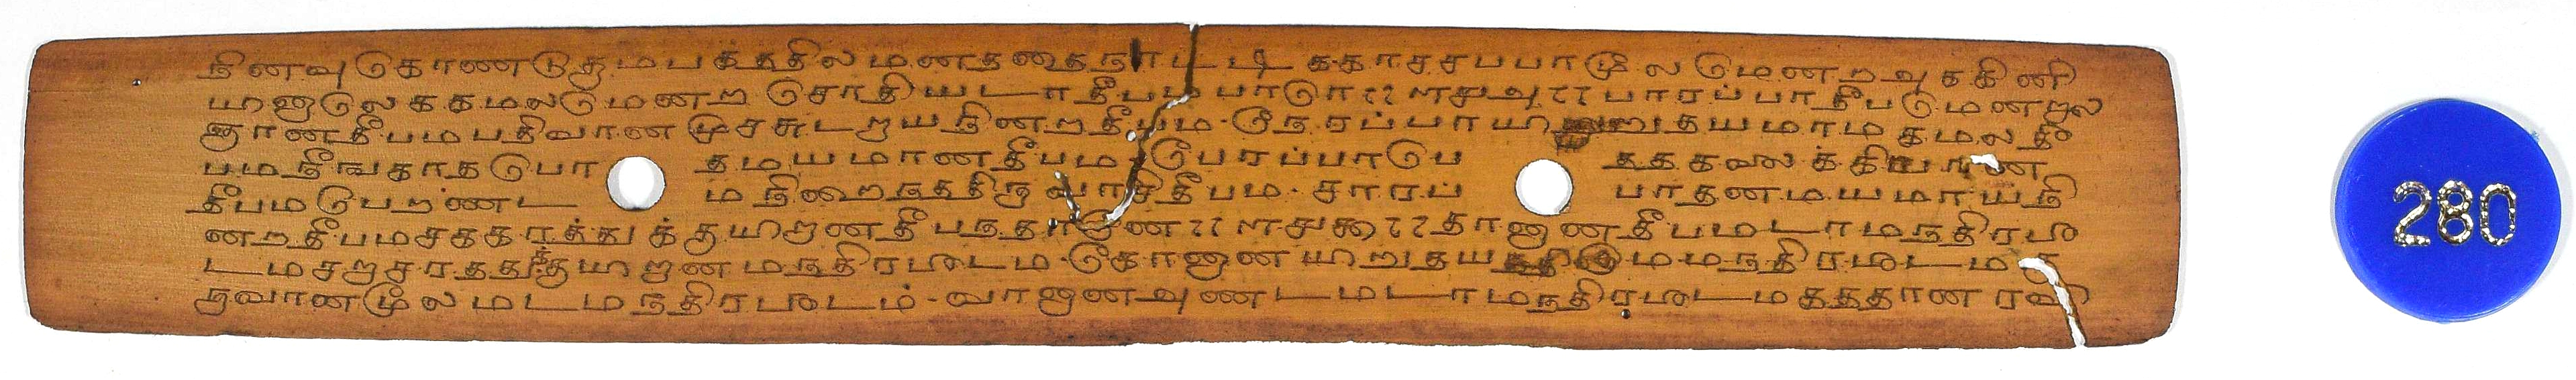 நினவுகொணடுதமபகத்ததிலமனததைநாட்டி ககாசசபபாமூலமெனறவுககினி
யானுலெககமலமெனற சொதியடாதீபமபாரொ ௭௰௮ பாரப்பாதீபமெனறல
ஞானதீபமபதிவானமூசசுடறயநினறதீபம நெரப்பாயிறுறுதயமாமகமலதீ
பமநீஙகாதபொதமயமானதீபம பெரப்பாபெதககலைக்கியான
தீபமபெறணடமநிறைநததிருவாசிதீபம சாரப்பாதனமயமாயநி
னறதீபமசககரத்துக்குயிறானதீபநதானெ ௭௰௯ தானானதீபமடாமநதிரபூ
டமசறசரததுக்குயிறானமநதிரபூடம கொனானயிறுதய மமநதிரபூடம
தவானமூலமடமநதிரபூடம வானானவணடமடாமநதிரபூடமகததானரவி
280